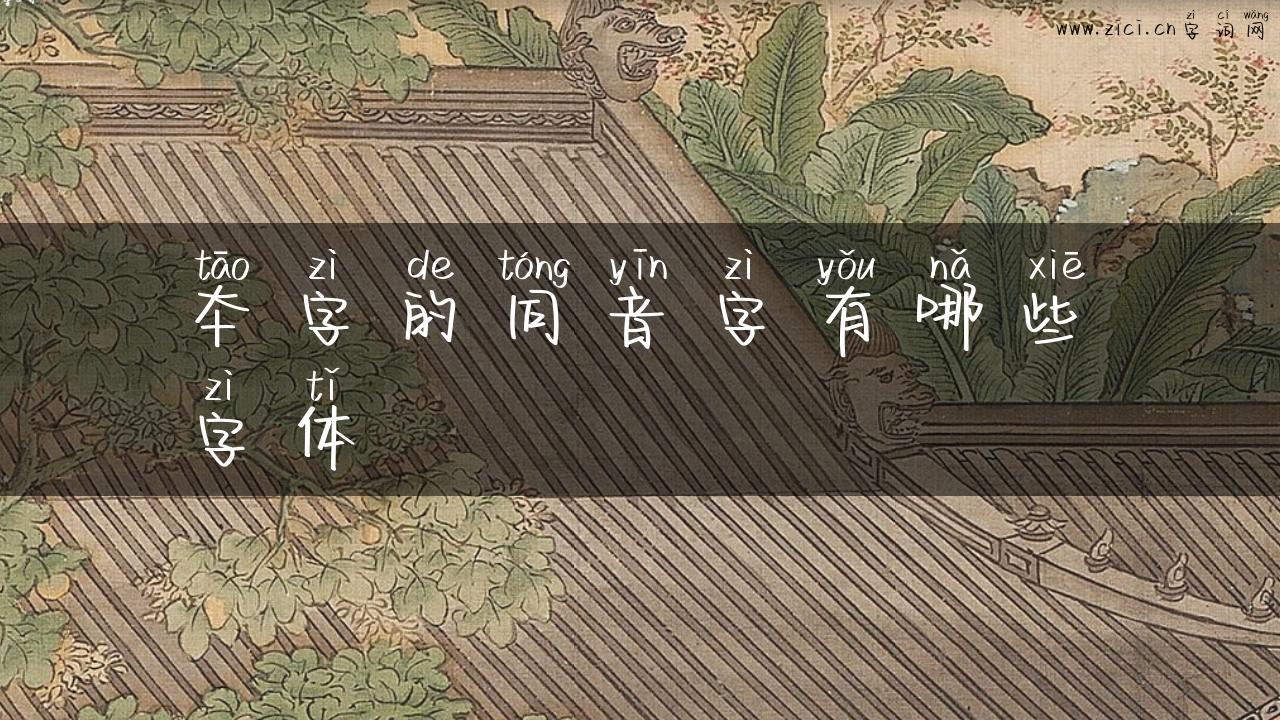 zì cí wǎng
www.zici.cn 字词网
tāo zì de tóng yīn zì yǒu nǎ xiē
夲字的同音字有哪些
zì tǐ
字体